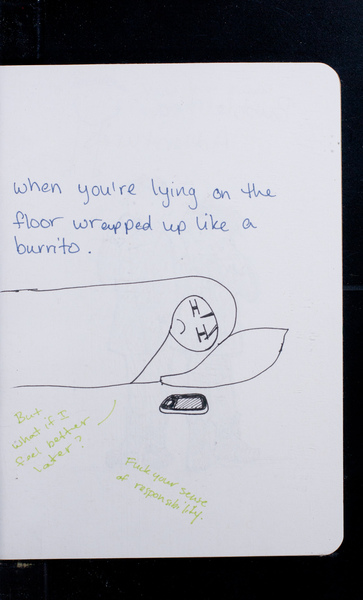 when you're lying on the
floor wrapped up like a
burrito.
But
what if I
feel better
later?
Fuck your sense
of responsibility.